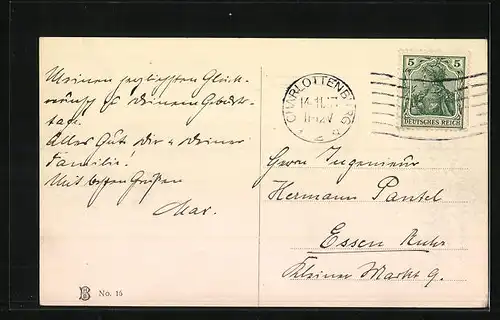 Meinen herzlichsten Glück-
wunsch z. Deinem Geburts-
tage!
Alles Gute Dir u. Deiner
Familie!
Mit besten Grüßen
Max.
No. 15
CHARLOTTENBURG
14.11.
11-12V
5 5
DEUTSCHES REICH
Herrn Ingenieur
Hermann Pantel
Essen Ruhr
Kleiner Markt 9.